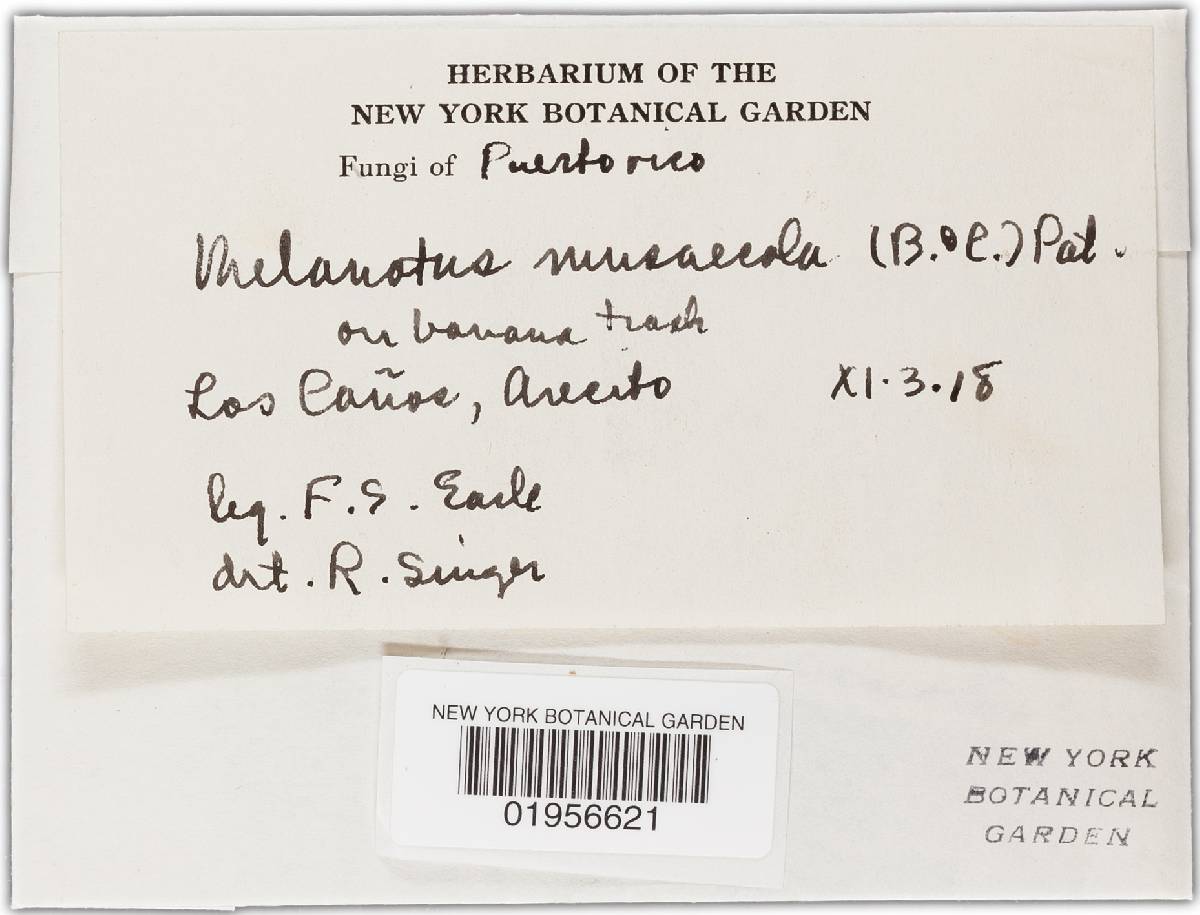 HERBARIUM OF THE
NEW YORK BOTANICAL GARDEN
Fungi of Puerto rico
Melanotus musaecola (B. & C.) Pat.
on banana trash
Los Caños, Arecito XI.3.18
leg. F.S. Earle
det. R. Singer
NEW YORK BOTANICAL GARDEN
01956621
NEW YORK
BOTANICAL
GARDEN